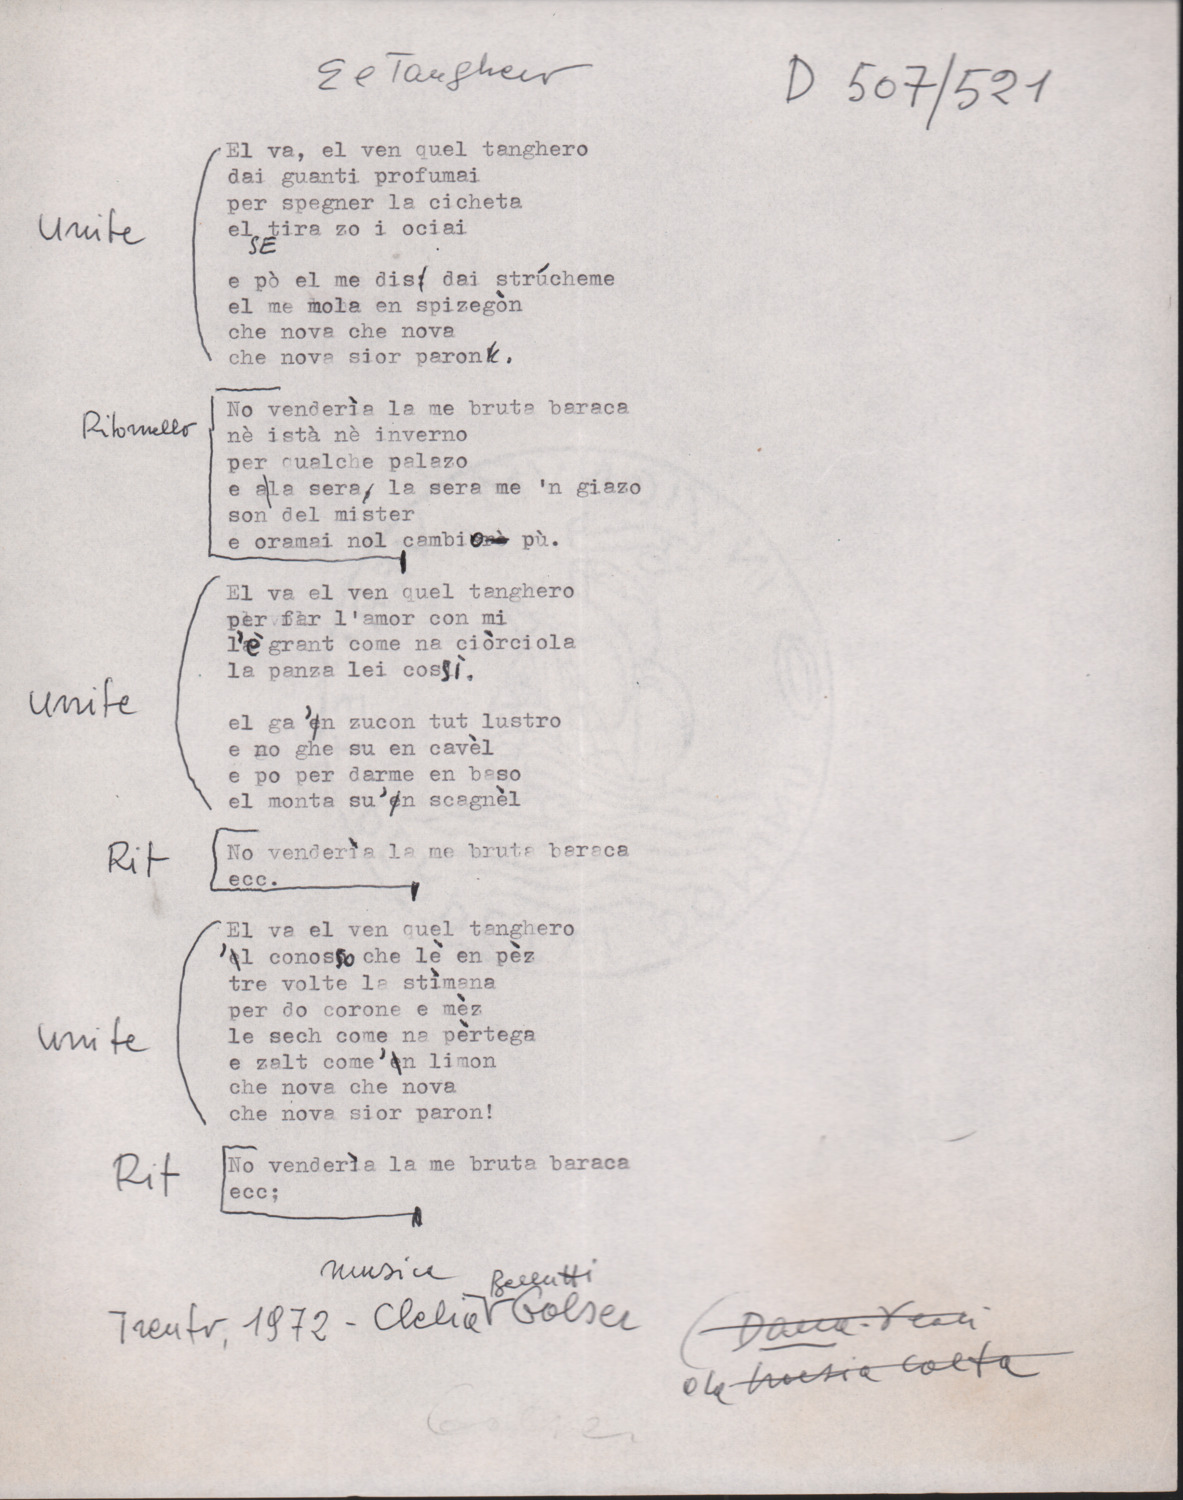 El Tanghero
D 507/521
El va, el ven quel tanghero
dai guanti profumai
per spegner la cicheta
el SE tira zo i ociai
Unite
e pò el me dis dai strúcheme
el me mola en spizegòn
che nova che nova
che nova sior paron.
Ritornello
No venderìa la me bruta baraca
nè istà nè inverno
per qualche palazo
e a la sera, la sera me 'n giazo
son del mister
e oramai nol cambio pù.
El va el ven quel tanghero
per far l'amor con mi
l'è grant come na ciòrciola
la panza lei cossì.
Unite
el ga 'n zucon tut lustro
e no ghe su en cavèl
e po per darme en baso
el monta su 'n scagnèl
Rit
No venderìa la me bruta baraca
ecc.
El va el ven quel tanghero
'l conosso che lè en pèz
tre volte la stìmana
per do corone e mèz
Unite
le sech come na pèrtega
e zalt come 'n limon
che nova che nova
che nova sior paron!
Rit
No venderìa la me bruta baraca
ecc;
musica
Trento, 1972 - Clelia Bellutti Golser